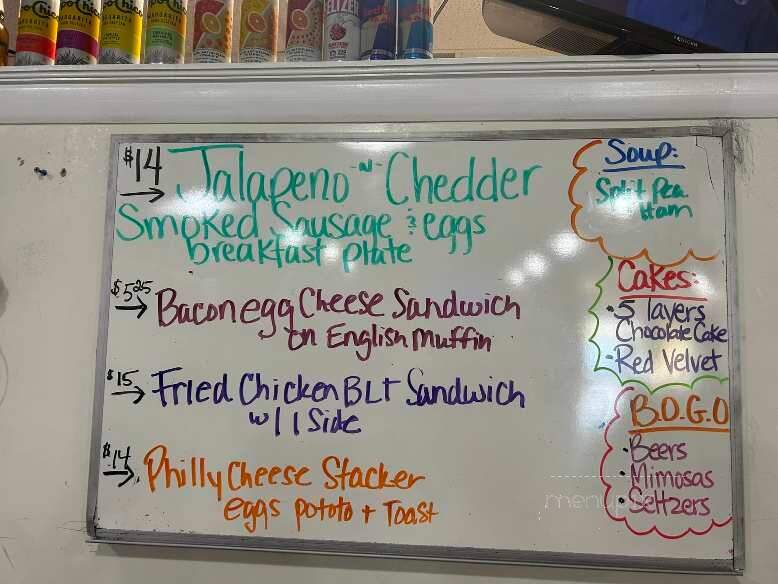 $14 → Jalapeno -N- Chedder
Smoked Sausage & eggs
breakfast plate
$5.25 → Bacon egg Cheese Sandwich
on English Muffin
$15 → Fried Chicken BLT Sandwich
w/ 1 Side
$14 → Philly Cheese Stacker
eggs pototo + Toast
Soup:
Split Pea
Ham
Cakes:
• 5 layers
Chocolate Cake
• Red Velvet
B.O.G.O
• Beers
• Mimosas
• Seltzers